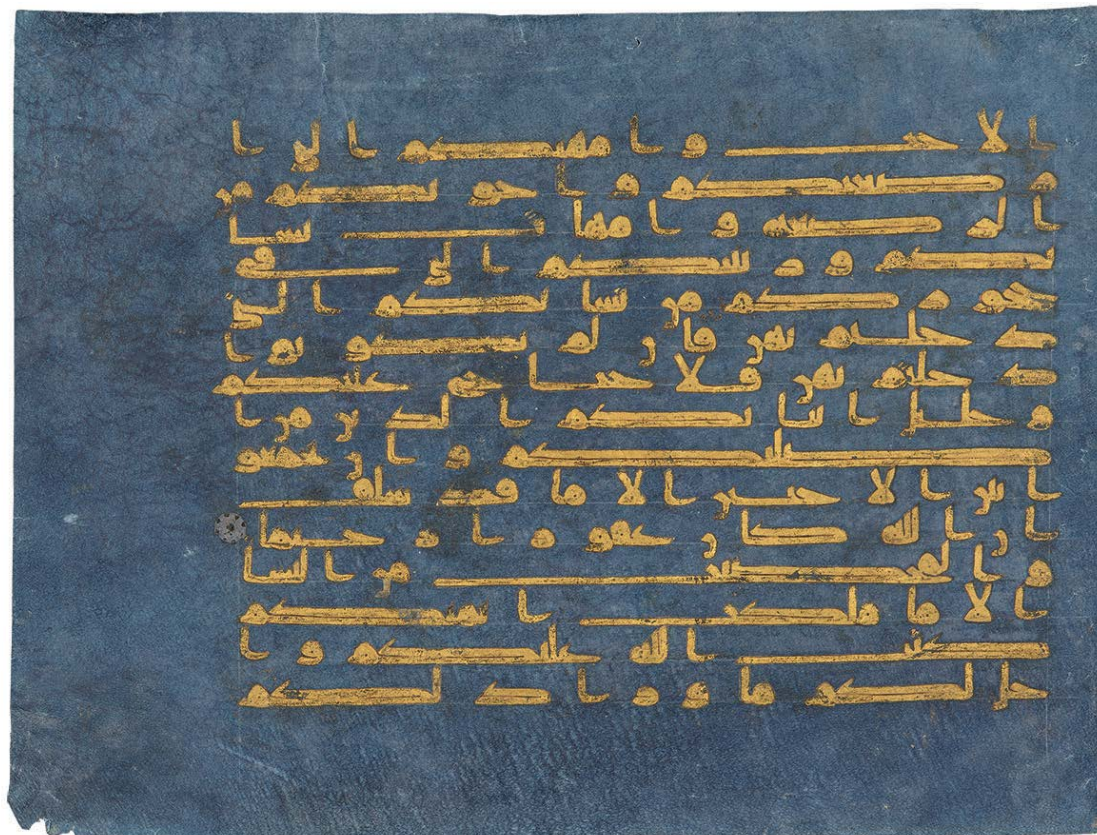 الاخت وامهتكم التي ا
رضعنكم واخوتكم من
الرضعة وامهات نسا
ئكم وربئبكم التي في
حجوركم من نسائكم التي
دخلتم بهن فان لم تكونوا
دخلتم بهن فلا جناح عليكم
وحلئل ابنائكم الذين من ا
صلبكم وان تجمعو
ا بين الاختين الا ما قد سلف
ان الله كان غفورا رحيما
والمحصنت من النسا
الا ما ملكت ايمنكم
كتب الله عليكم وا
حل لكم ما ورا ذلكم